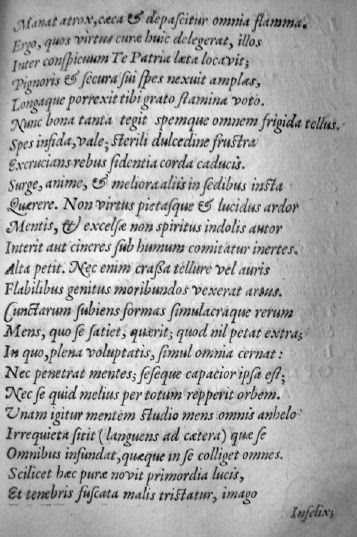 Manat atrox, cæca & depascitur omnia flamma.
Ergo, quos virtus curæ huic delegerat, illos
Inter conspicuum Te Patria læta locavit;
Pignoris & secura sui spes nexuit amplas,
Longaque porrexit tibi grato stamina voto.
Nunc bona tanta tegit spemque omnem frigida tellus.
Spes infida, vale; sterili dulcedine frustra
Excrucians rebus fidentia corda caducis.
Surge, anime, & meliora aliis in sedibus insta
Quærere. Non virtus pietasque & lucidus ardor
Mentis, & excelsæ non spiritus indolis autor
Interit aut cineres sub humum comitatur inertes.
Alta petit. Nec enim crassa tellure vel auris
Flabilibus genitus moribundos vexerat artus.
Cunctarum subiens formas simulacraque rerum
Mens, quo se satiet, quærit; quod nil petat extra;
In quo, plena voluptatis, simul omnia cernat:
Nec penetrat mentes; seseque capacior ipsa est;
Nec se quid melius per totum repperit orbem.
Unam igitur mentem studio mens omnis anhelo
Irrequieta sitit (languens ad cætera) quæ se
Omnibus infundat, quæque in se colliget omnes.
Scilicet hæc puræ novit primordia lucis,
Et tenebris fuscata malis tristatur, imago
Infelix;